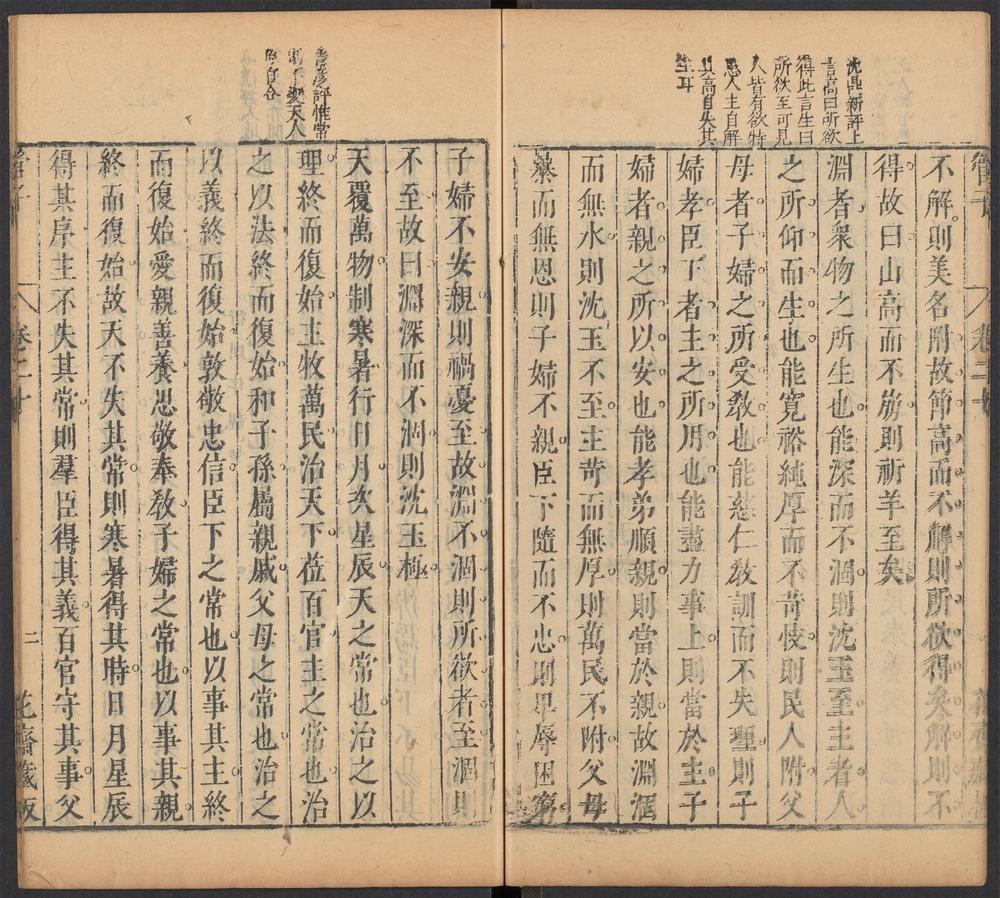 沈鼎新評上
言高曰所欲
得此言生曰
所欲至可見
人皆有欲特
患人主自解
其高自失其
生耳
管子
卷二十
花齋藏
不解則美名附故節高而不解則所欲得矣解則不
得故曰山高而不崩則祈羊至矣
淵者衆物之所生也能深而不涸則沈玉至主者人
之所仰而生也能寬裕純厚而不苛忮則民人附父
母者子婦之所受教也能慈仁教訓而不失理則子
婦孝臣下者主之所用也能盡力事上則當於主子
婦者親之所以安也能孝弟順親則當於親故淵涸
而無水則沈玉不至主苛而無厚則萬民不附父母
暴而無恩則子婦不親臣下隨而不忠則卑辱困窮
評惟常
變天人
自合
子婦不安親則禍憂至故淵不涸則所欲者至涸則
不至故曰淵深而不涸則沈玉極
天覆萬物制寒暑行日月次星辰天之常也治之以
理終而復始主牧萬民治天下莅百官主之常也治
之以法終而復始和子孫屬親戚父母之常也治之
以義終而復始敦敬忠信臣下之常也以事其主終
而復始愛親善養思敬奉教子婦之常也以事其親
終而復始故天不失其常則寒暑得其時日月星辰
得其序主不失其常則羣臣得其義百官守其事父
管子
卷二十
二
花齋藏板